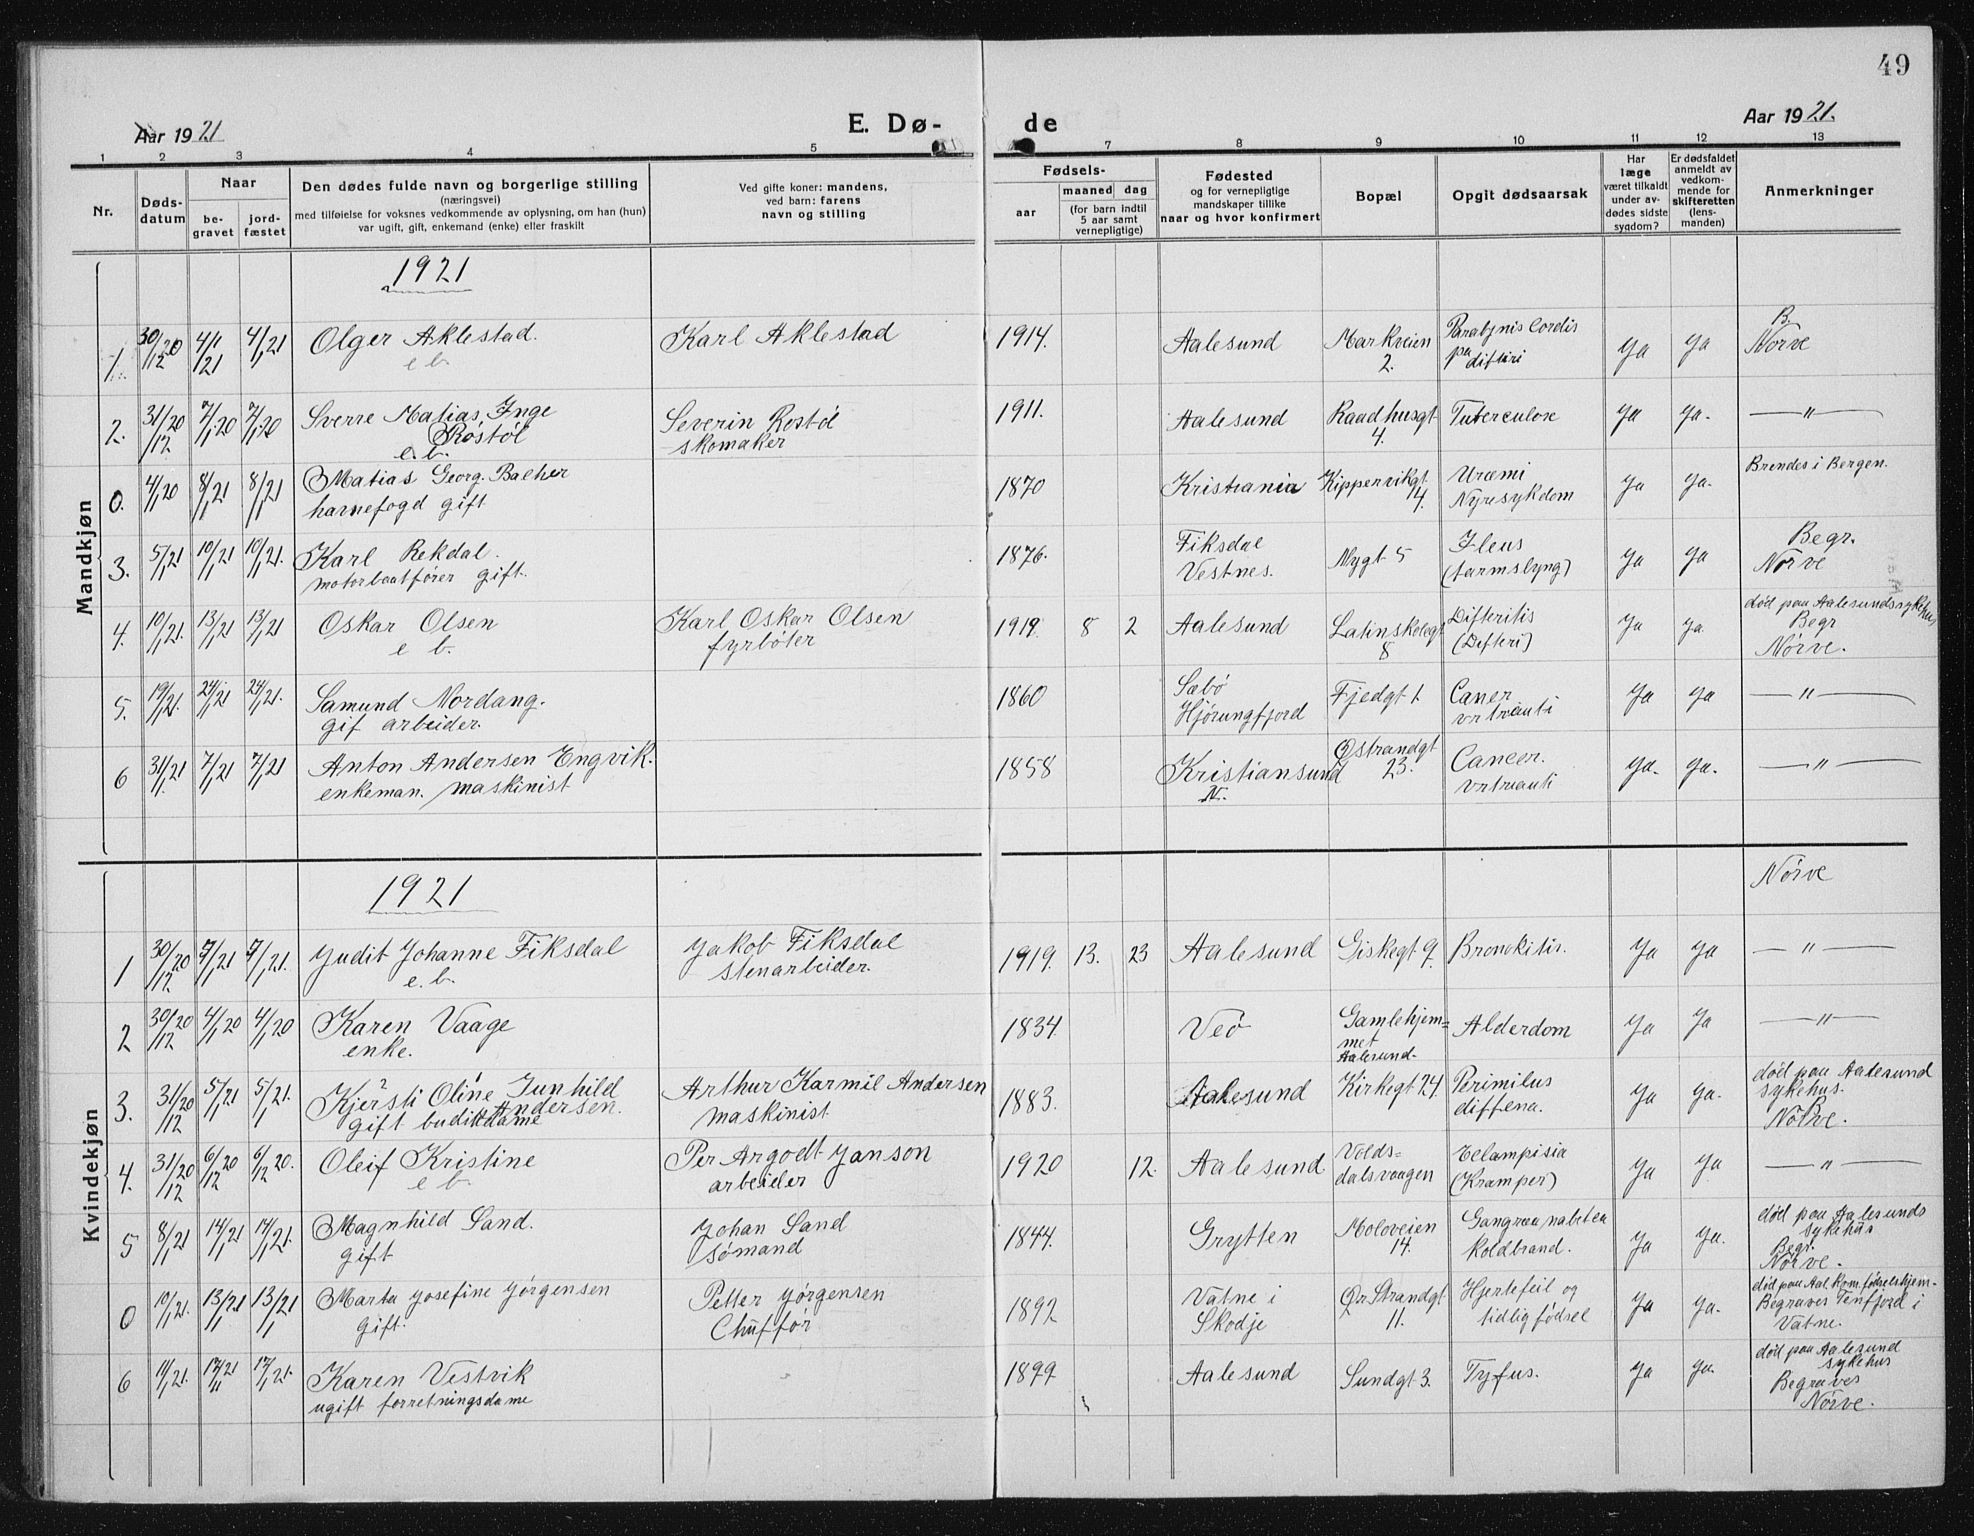 49
Aar 1921
E. Dø-
de
Aar 1921.
1 2 3 4 5 7 8 9 10 11 12 13
Nr.
Døds-
datum
Naar
be-
gravet
jord-
fæstet
Den dødes fulde navn og borgerlige stilling
(næringsvei)
med tilføielse for voksnes vedkommende av oplysning, om han (hun)
var ugift, gift, enkemand (enke) eller fraskilt
Ved gifte koner: mandens,
ved barn: farens
navn og stilling
Fødsels-
aar
maaned dag
(for barn indtil
5 aar samt
vernepligtige)
Fødested
og for vernepligtige
mandskaper tillike
naar og hvor konfirmert
Bopæl
Opgit dødsaarsak
Har
læge
været tilkaldt
under av-
dødes sidste
sygdom?
Er dødsfaldet
anmeldt av
vedkom-
mende for
skifteretten
(lens-
manden)
Anmerkninger
Mandkjøn
1921
1. 30/12 20 4/1 21 4/1 21 Olger Aklestad.
e b.
Karl Aklestad
1914. Aalesund Markveien
2.
Cordis
difteri
Ja Ja B.
Nørve
2. 31/12 20 7/1 20 7/1 20 Sverre Matias Inge
Røstøl
e. b.
Severin Rostøl
skomaker
1911. Aalesund Raadhusgt
4.
Tuberculose Ja Ja. —〃—
0. 4/1 20 8/1 21 8/1 21 Matias Georg. Balher
havnefogd gift
1870 Kristiania Kippervikgt
14.
Uræmi
Nyresykdom
Ja Ja. Brendes i Bergen.
3. 5/1 21 10/1 21 10/1 21 Karl Rekdal.
motorbaatfører gift.
1876. Fiksdal
Vestnes.
Nygt 5 Ileus
(tarmslyng)
Ja Ja Begr.
Nørve
4. 10/1 21. 13/1 21 13/1 21 Oskar Olsen
e b.
Karl Oskar Olsen
fyrbøter
1919. 8 2 Aalesund Latinskolegt
8
Difteritis
(Difteri)
Ja Ja død paa Aalesundssykehus
Begr
Nørve.
5. 19/1 21. 24/1 21 24/1 21. Samund Nordang.
gif arbeider.
1860 Sæbø
Hjørungfjord
Fjedgt 1 Cancer
vntriculi
Ja Ja —〃—
6 31/1 21 7/1 21 7/1 21 Anton Andersen Engvik.
enkeman. maskinist
1858 Kristiansund
N.
Østrandgt
23.
Cancer.
vntriculi
Ja. Ja. —〃—
Kvindekjøn
1921
Nørve
1 30/12 20 7/1 21 7/1 21. Judit Johanne Fiksdal
e. b.
Jakob Fiksdal
stenarbeider.
1919. 13. 23 Aalesund Giskegt 9. Bronkitis. Ja Ja —〃—
2 30/12 20 4/1 20 4/1 20 Karen Vaage
enke.
1834 Veø Gamlehjem=
met
Aalesund-
Alderdom Ja Ja —〃—
3. 31/12 20 5/1 21 5/1 21. Kjersti Oline Gunhild
Andersen.
gift
Arthur Karmil Andersen
maskinist
1883. Aalesund Kirkegt 24.
Ja Ja. død paa Aalesund
sykehus.
B.
Nørve.
4. 31/12 20 6/12 20 6/12 20. Oleif Kristine
e b.
Per Argodt Janson
arbeider
1920 12. Aalesund. Volds-
dalsvaagen
Eclampisia
(Kramper)
Ja Ja —〃—
5 8/1 21 14/1 21 14/1 21. Magnhild Sand.
gift
Johan Sand
sømand
1844. Grytten Moloveien
14.
koldbrand.
Ja Ja. død paa Aalesunds
sykehus
Begr.
Nørve.
0 10/1 21. 13/1 21 13/1 21 Marta Josefine Jørgensen
gift.
Petter Jørgensen
Chuffør
1892 Vatne i
Skodje
Ør. Strandgt
11.
Hjertefeil og
tidlig fødsel
Ja Ja. død paa Aal kom. fødselshjem-
Begraves Tenfjord i
Vatne.
6 11/1 21. 17/1 21 17/1 21. Karen Vestvik
ugift forretningsdame
1899 Aalesund Sundgt 3. Tyfus. Ja Ja. død paa Aalesund
sykehus
Begraves
Nørve.